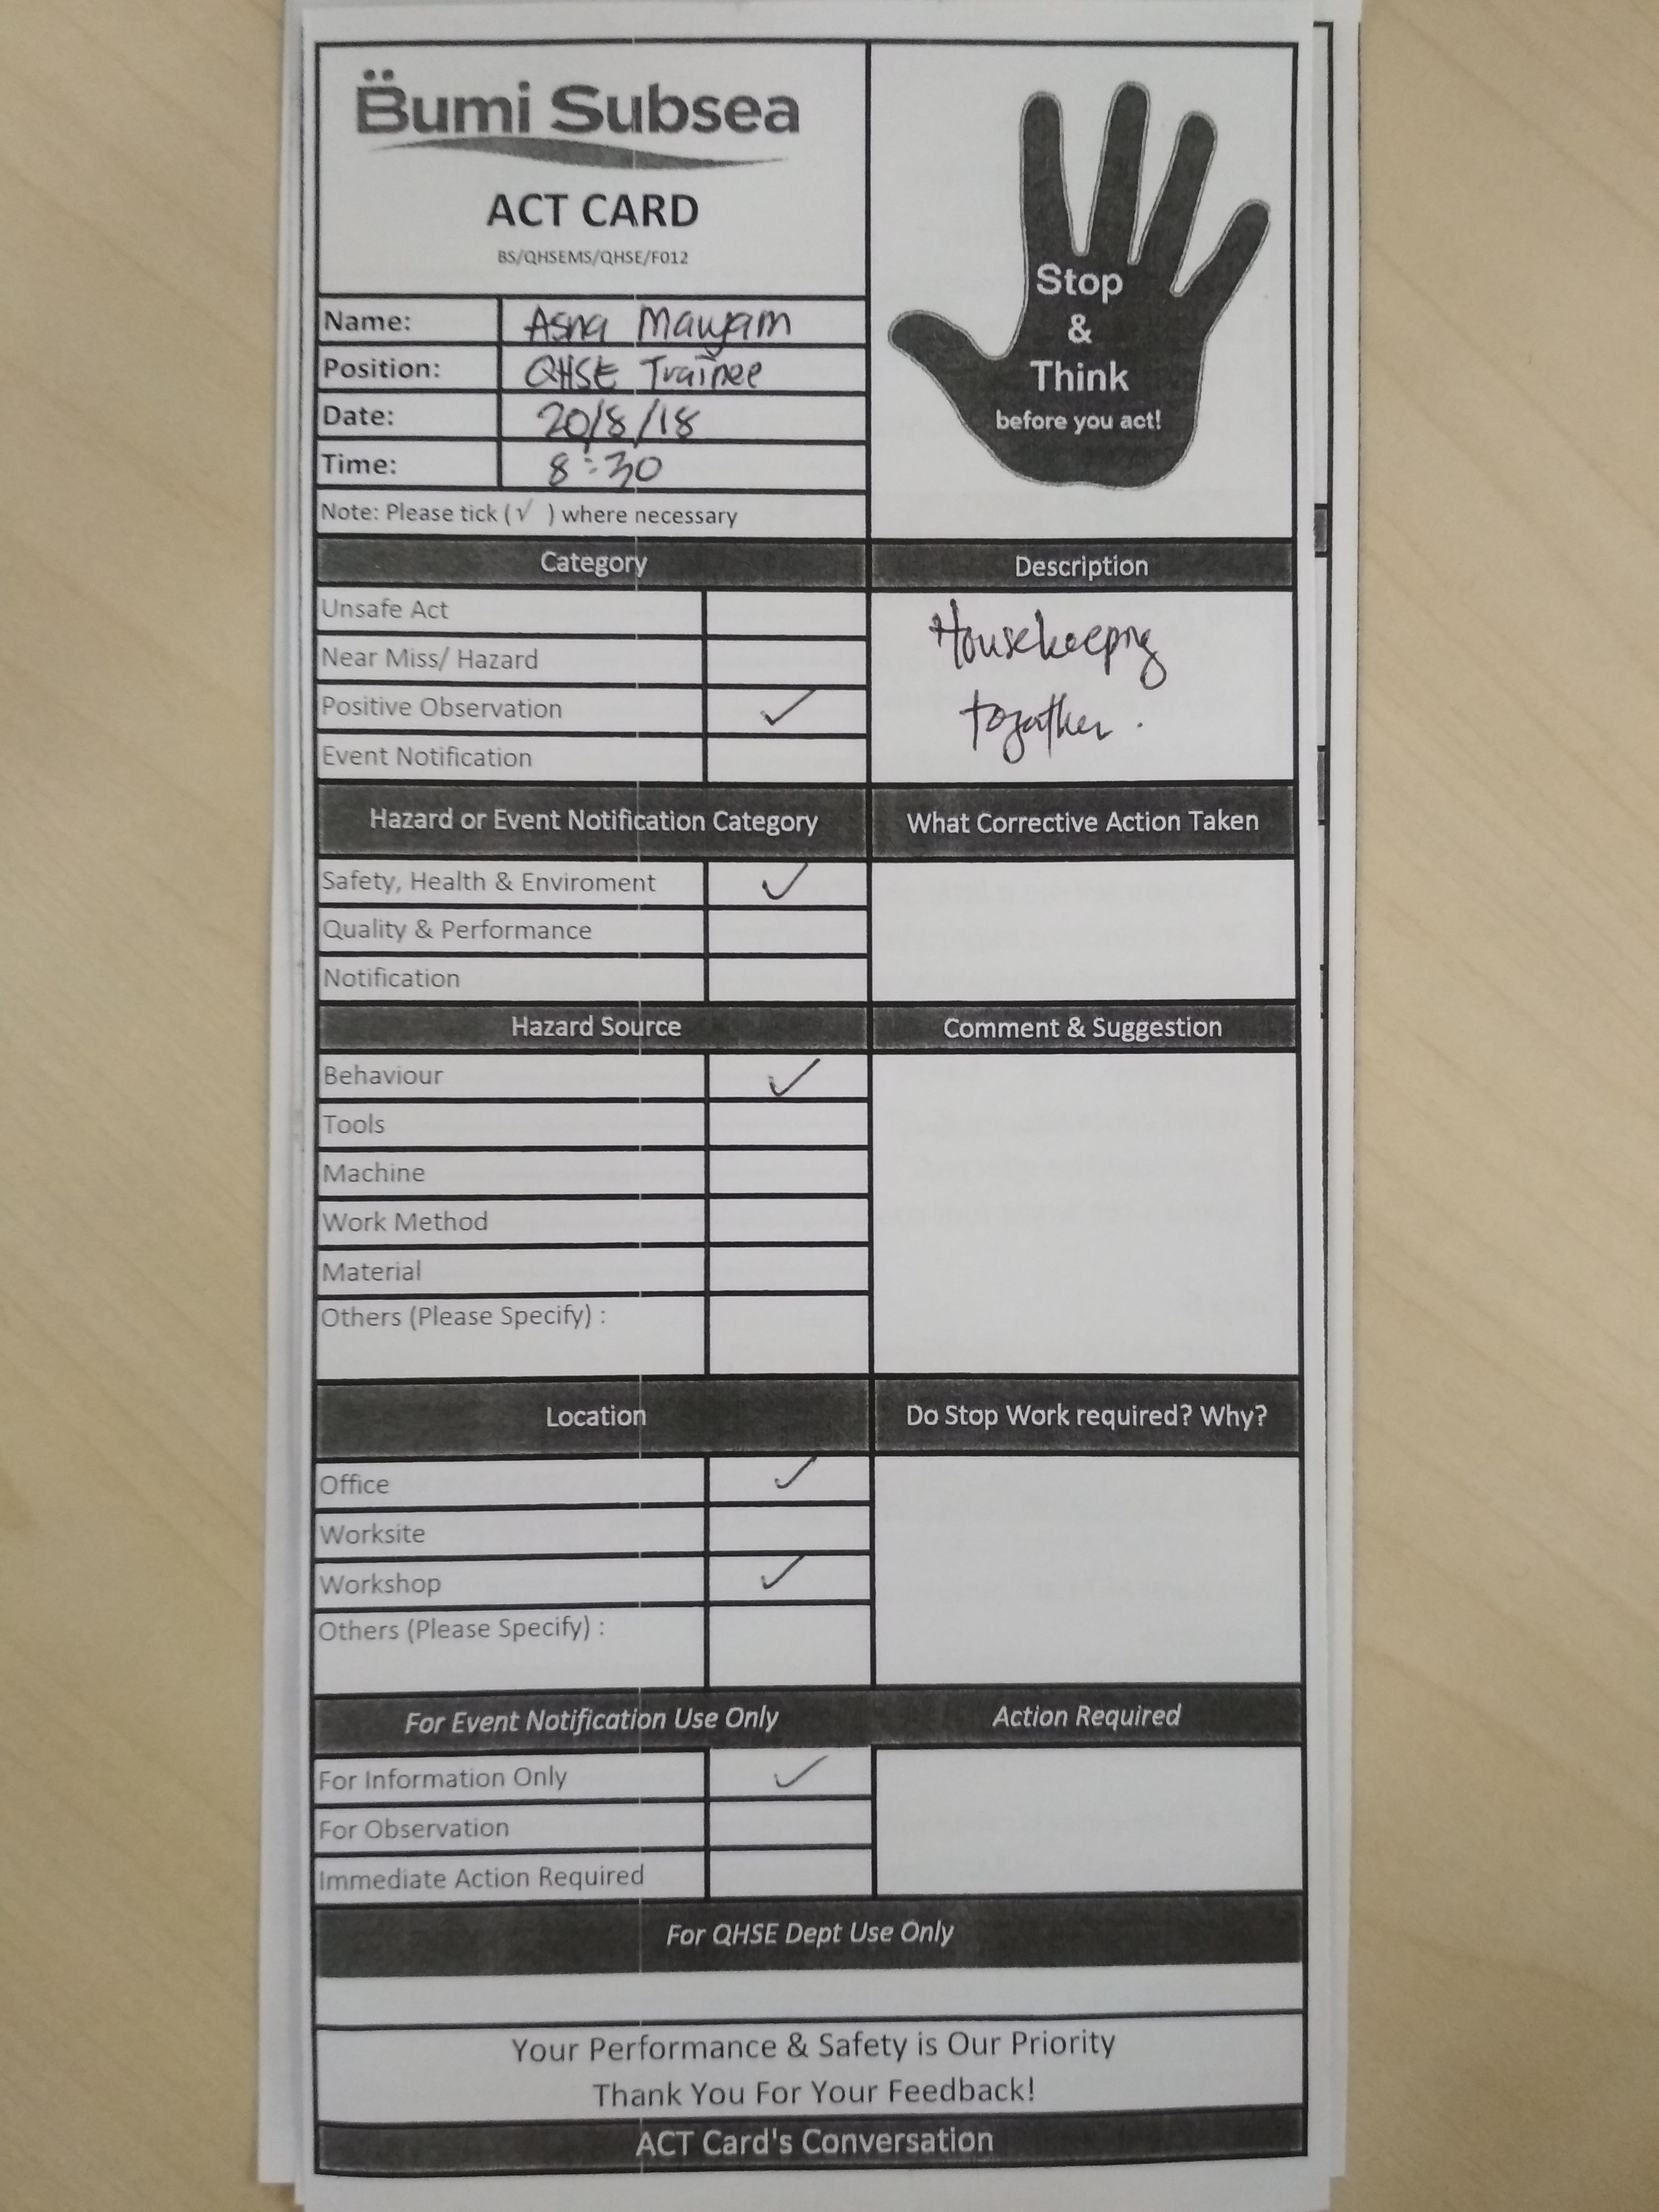 Bumi Subsea
ACT CARD
BS/QHSEMS/QHSE/F012
Stop
&
Think
before you act!
Name: Asna Maryam
Position: QHSE Trainee
Date: 20/8/18
Time: 8:30
Note: Please tick (√ ) where necessary
Category
Description
Unsafe Act
Near Miss/ Hazard
Positive Observation ✓
Event Notification
Housekeeping
togather.
Hazard or Event Notification Category
What Corrective Action Taken
Safety, Health & Enviroment ✓
Quality & Performance
Notification
Hazard Source
Comment & Suggestion
Behaviour ✓
Tools
Machine
Work Method
Material
Others (Please Specify) :
Location
Do Stop Work required? Why?
Office ✓
Worksite
Workshop ✓
Others (Please Specify) :
For Event Notification Use Only
Action Required
For Information Only ✓
For Observation
Immediate Action Required
For QHSE Dept Use Only
Your Performance & Safety is Our Priority
Thank You For Your Feedback!
ACT Card's Conversation